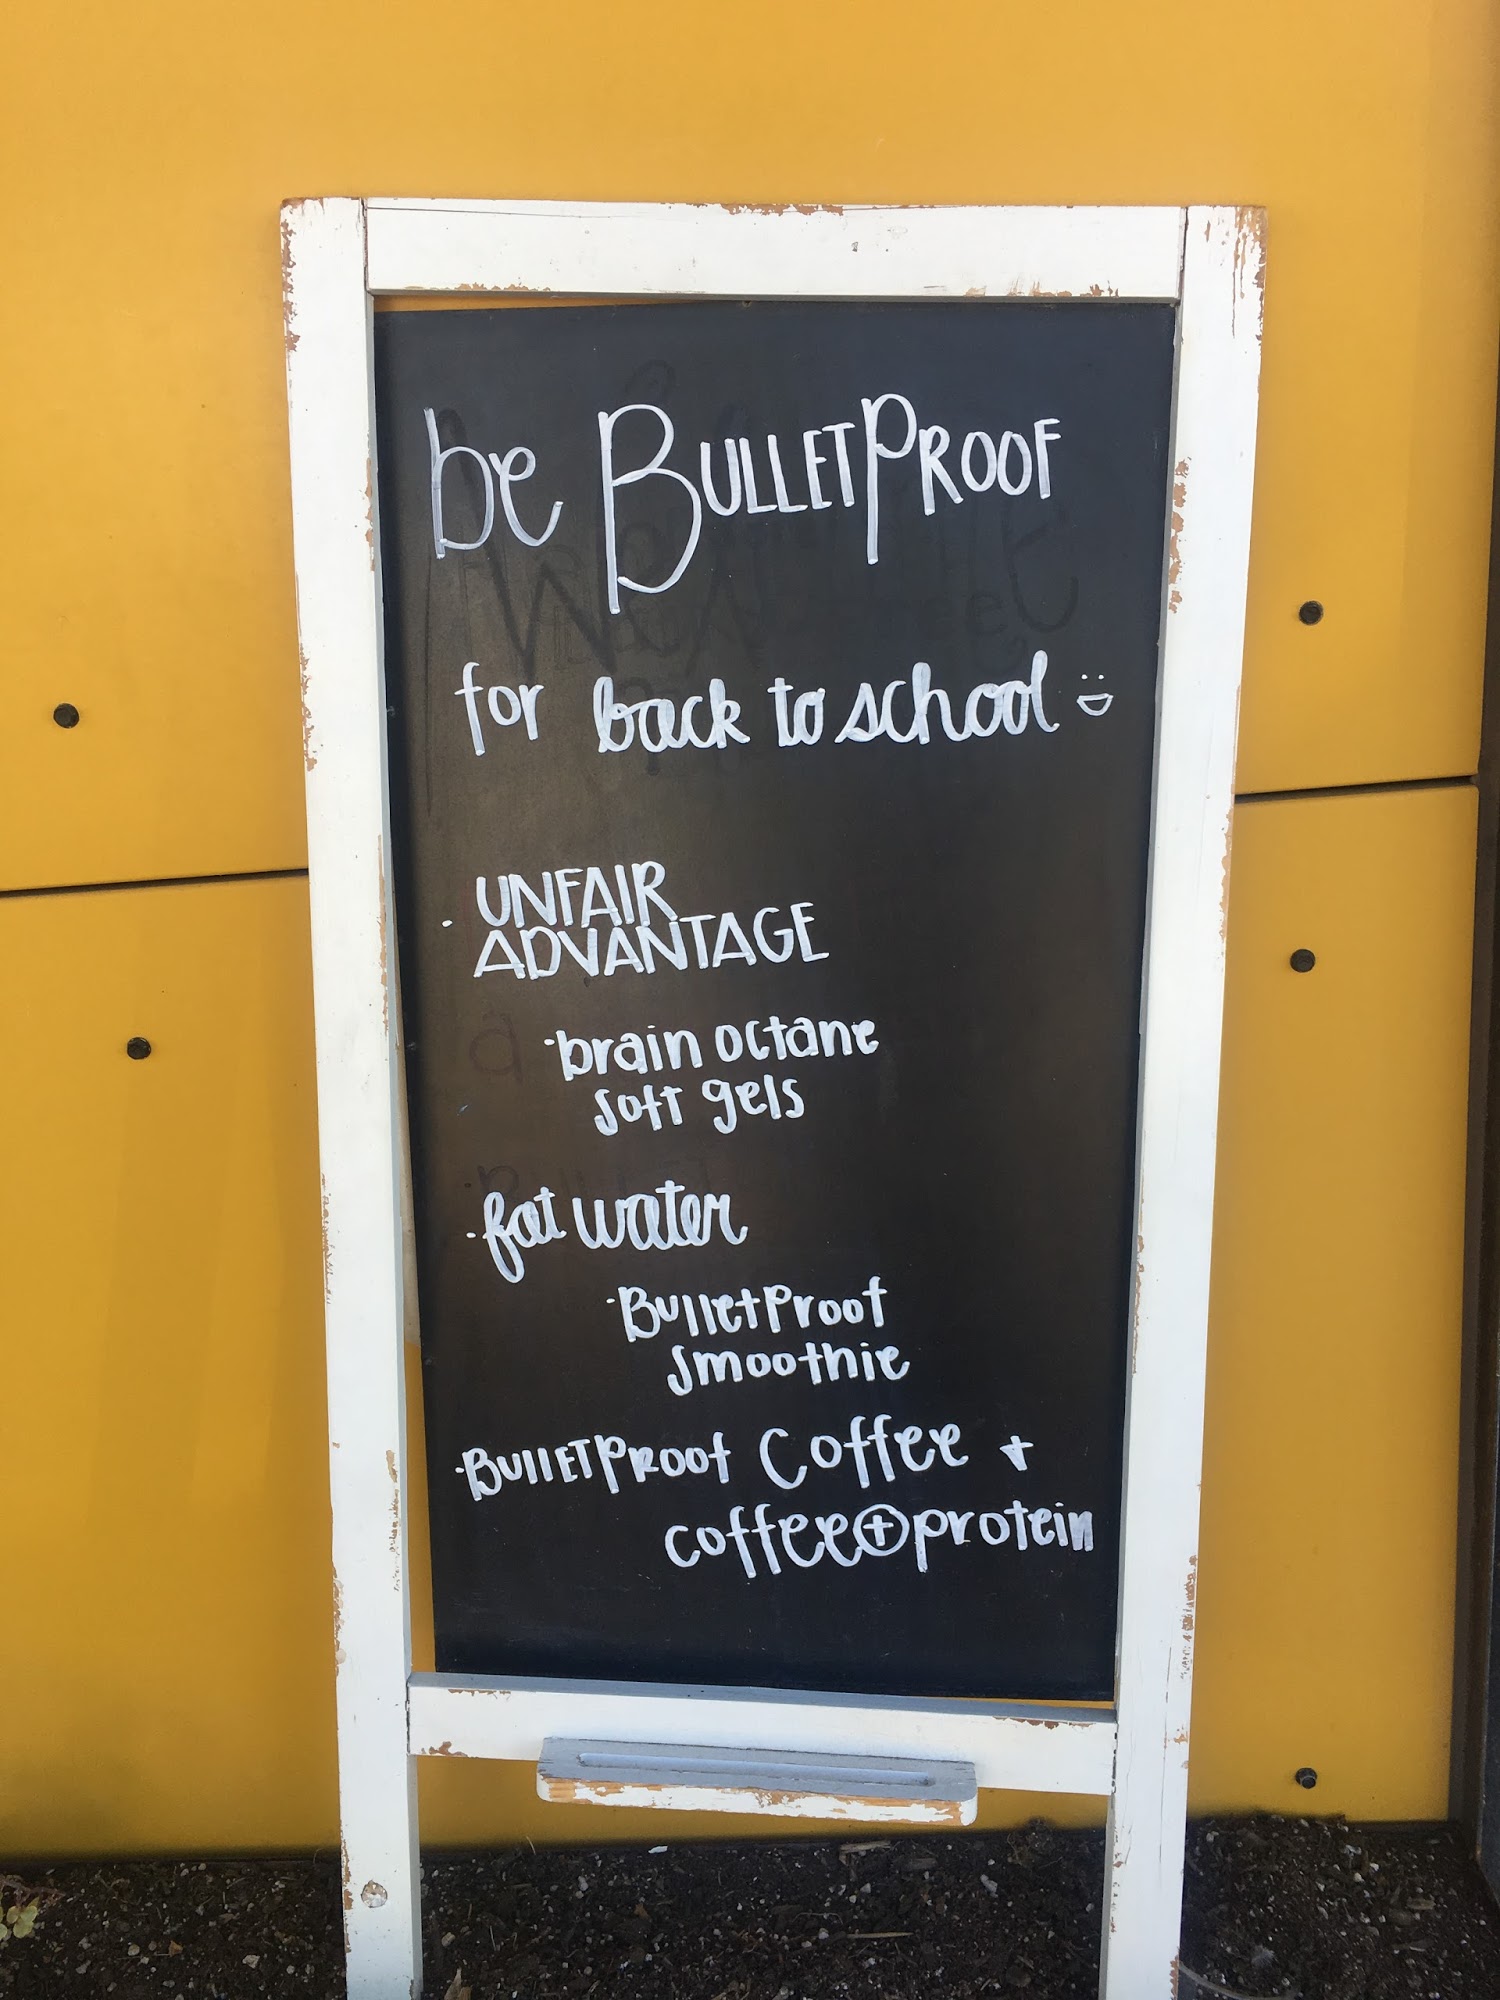 be BULLETPROOF
for back to school :D
· UNFAIR
ADVANTAGE
· brain octane
soft gels
· fat water
· BulletProof
smoothie
· BULLETPROOF Coffee +
coffee⊕protein